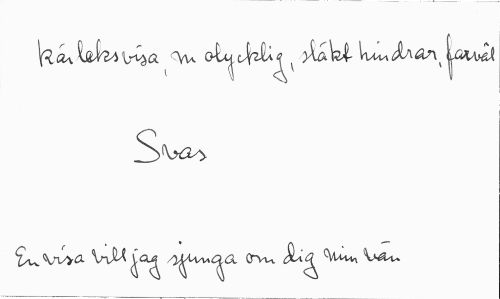 kärleksvisa, m olycklig, släkt hindrar, farväl
Svas
En visa vill jag sjunga om dig min vän